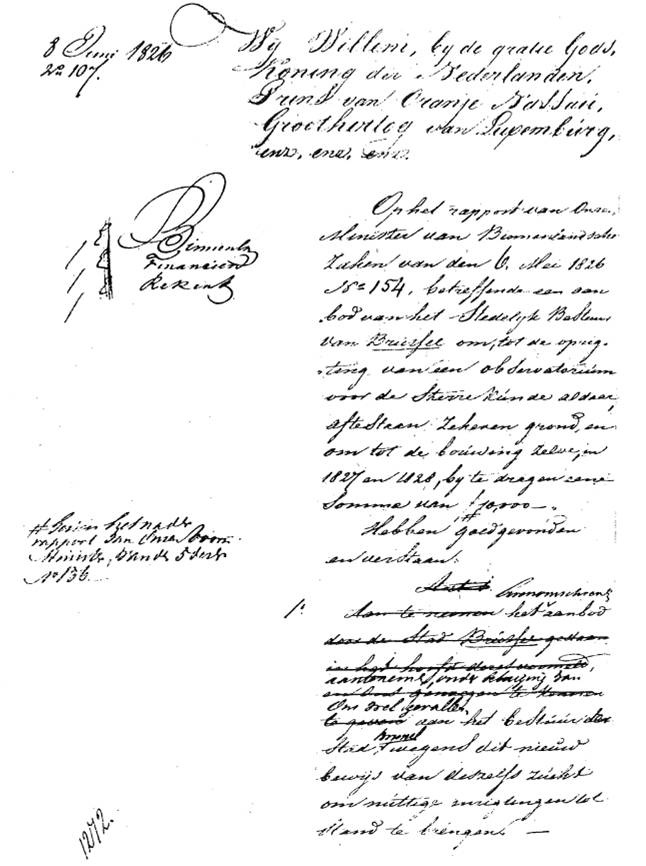 8 Juni 1826
No 107.
Wij Willem, bij de gratie Gods,
Koning der Nederlanden,
Prins van Oranje Nassau,
Groothertog van Luxemburg,
enz, enz, enz.
Binnenl
Financien
Rekenk
Op het rapport van Onzen
Minister van Binnenlandsche
Zaken van den 6. Mei 1826
No 154, betreffende een aan
bod van het Stedelijk Bestuur
van Brussel om, tot de oprig-
ting van een observatorium
voor de Sterrekunde aldaar,
afte staan zekeren grond, en
om tot de bouwing zelve, in
1827 en 1828, bij te dragen eene
Somme van f 10,000 —.
# Gezien het nader
rapport van Onzen Voorn
Minister, van de 5 dezer
No 136
Hebben # goedgevonden
en verstaan:
1o
Art 1 bovenomschreven
Aan te nemen het aanbod
door de Stad Brussel gedaan
aantenemen, onder
Ons welgevallen
te geven aan het bestuur der
Stad Brussel wegens dit nieuw
bewijs van deszelfs zucht
om nuttige inrigtingen tot
stand te brengen. —
1272.